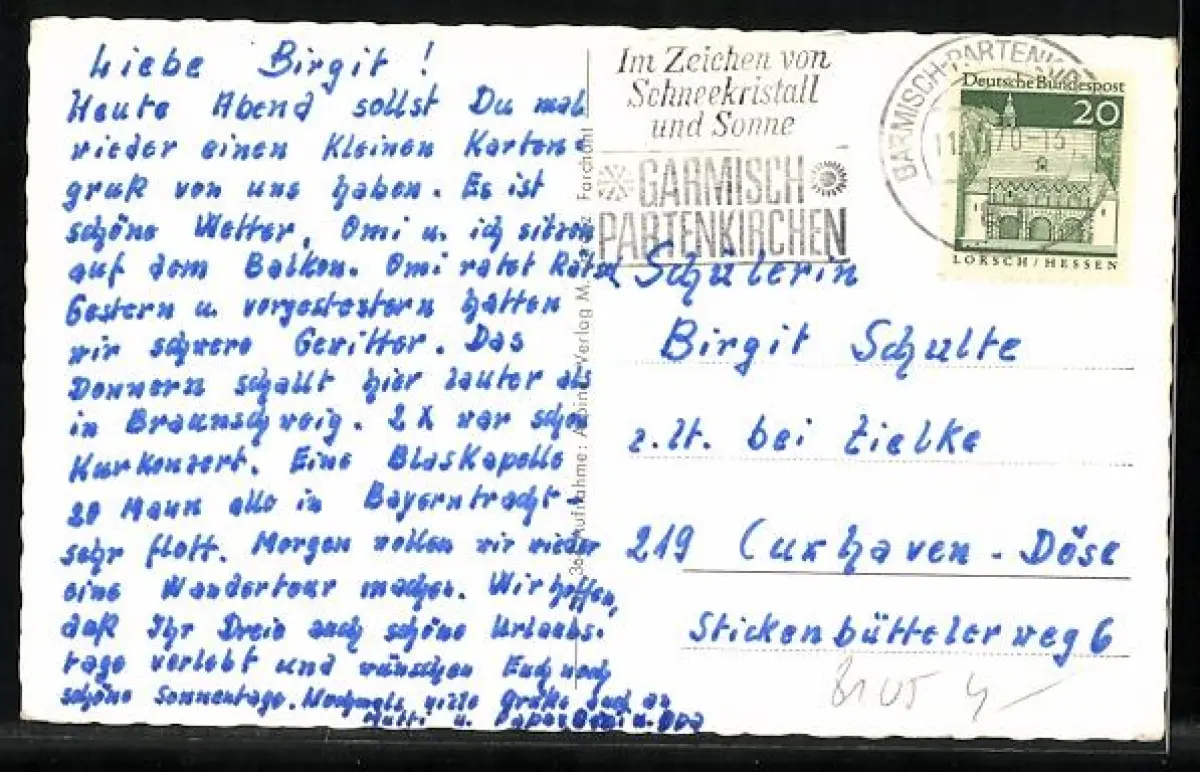 Liebe Birgit!
Heute Abend sollst Du mal
wieder einen Kleinen Karten-
gruß von uns haben. Es ist
schöne Wetter, Omi u. ich sitzen
auf dem Balkon. Omi ratet Rätsel
Gestern u. vorgestestern hatten
wir schwere Gewitter. Das
Donnern schallt hier lauter als
in Braunschweig. 2 X war schon
Kurkonzert. Eine Blaskapelle
20 Mann alle in Bayerntracht-
sehr flott. Morgen wollen wir wieder
eine Wandertour machen. Wir hoffen,
daß Ihr Dreie auch schöne Urlaubs-
tage verlebt und wünschen Euch noch
schöne Sonnentage. Nochmals viele Grüße auch an
Mutti u. Papa. Omi u. Opa
Aufnahme: Alpine Verlag M.
Farchant
Im Zeichen von
Schneekristall
und Sonne
GARMISCH
PARTENKIRCHEN
GARMISCH-PARTENK
70-15
Deutsche Bundespost
20
LORSCH/HESSEN
Schülerin
Birgit Schulte
z.Zt. bei Zielke
219 Cuxhaven-Döse
Stickenbütteler weg 6